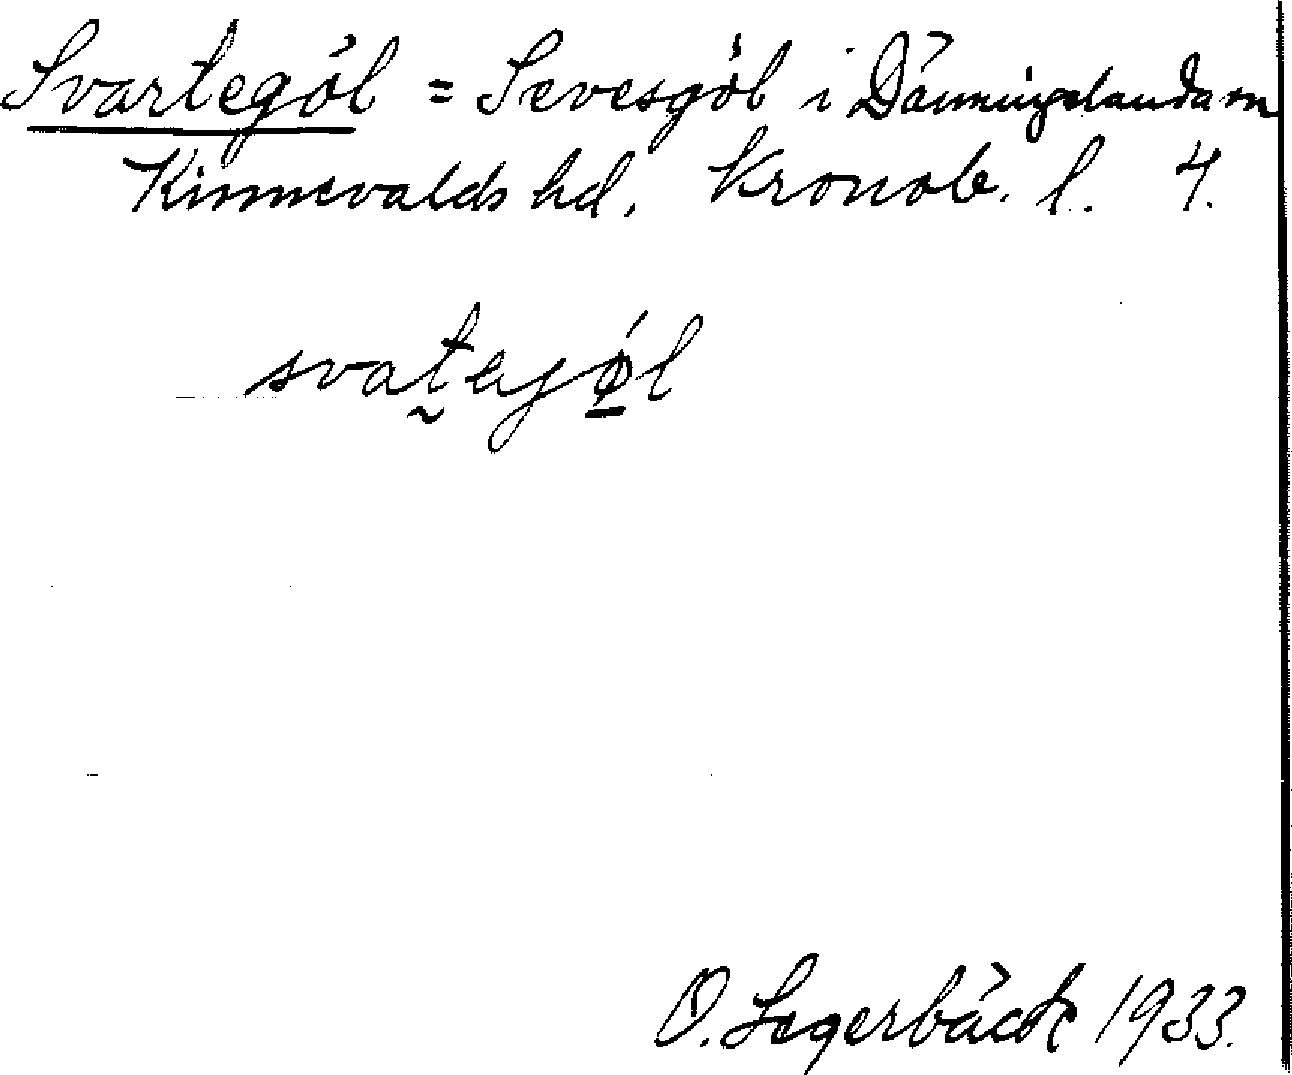 Svartegöl = Sevesgöl i Dänningelanda sn
Kinnevalds hd, Kronob. l. 4.
svatejǿl
O. Segerbäck 1933.